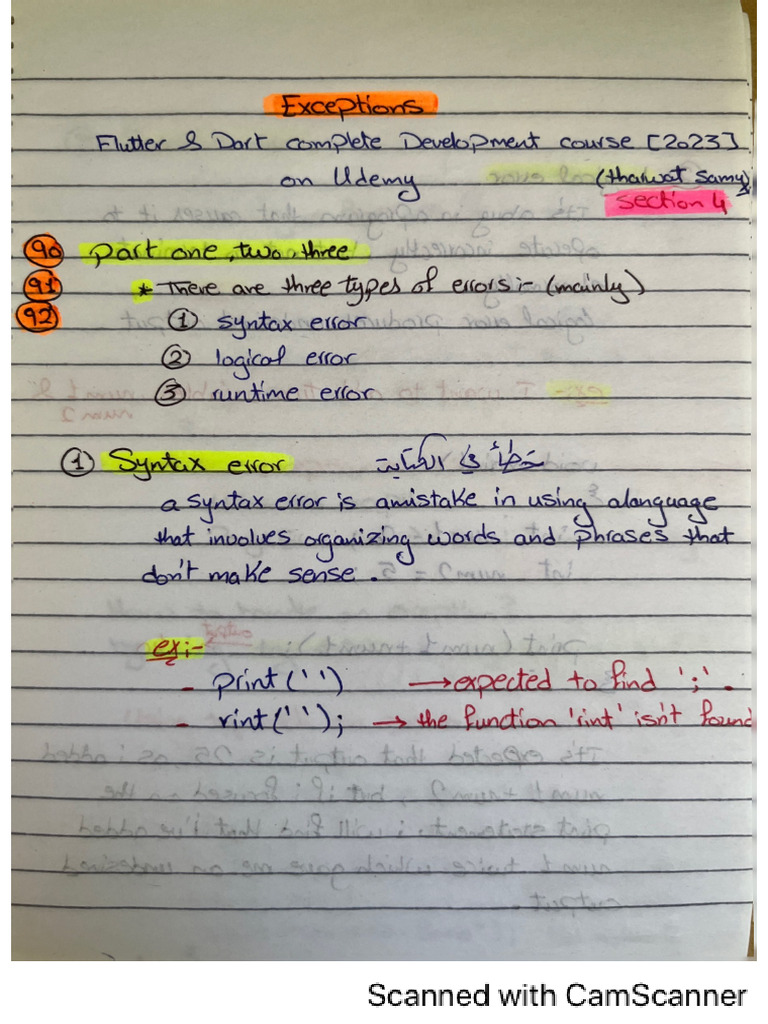 Exceptions
Flutter & Dart complete Development course [2023]
on Udemy (tharwat samy)
section 4
90 part one, two, three
91 * There are three types of errors :- (mainly)
92 ① syntax error
② logical error
③ runtime error
① Syntax error خطأ في الكتابة
a syntax error is amistake in using alanguage
that involves organizing words and phrases that
don't make sense .
ex:-
- print('') → expected to find ';' .
- rint(''); → the function 'rint' isn't found
Scanned with CamScanner